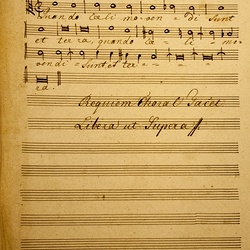 Quando Cœli mo-ven-di Sunt
et terra, quando cœ-li-mo-
vendi-Sunt et ter-
ra.
Requiem Choral Tacet
Libera ut Supera //.